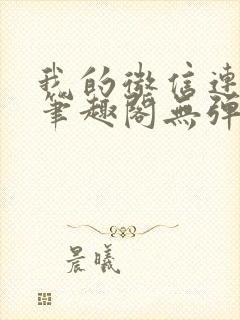 我的微信連
筆趣閣無彈
晨曦